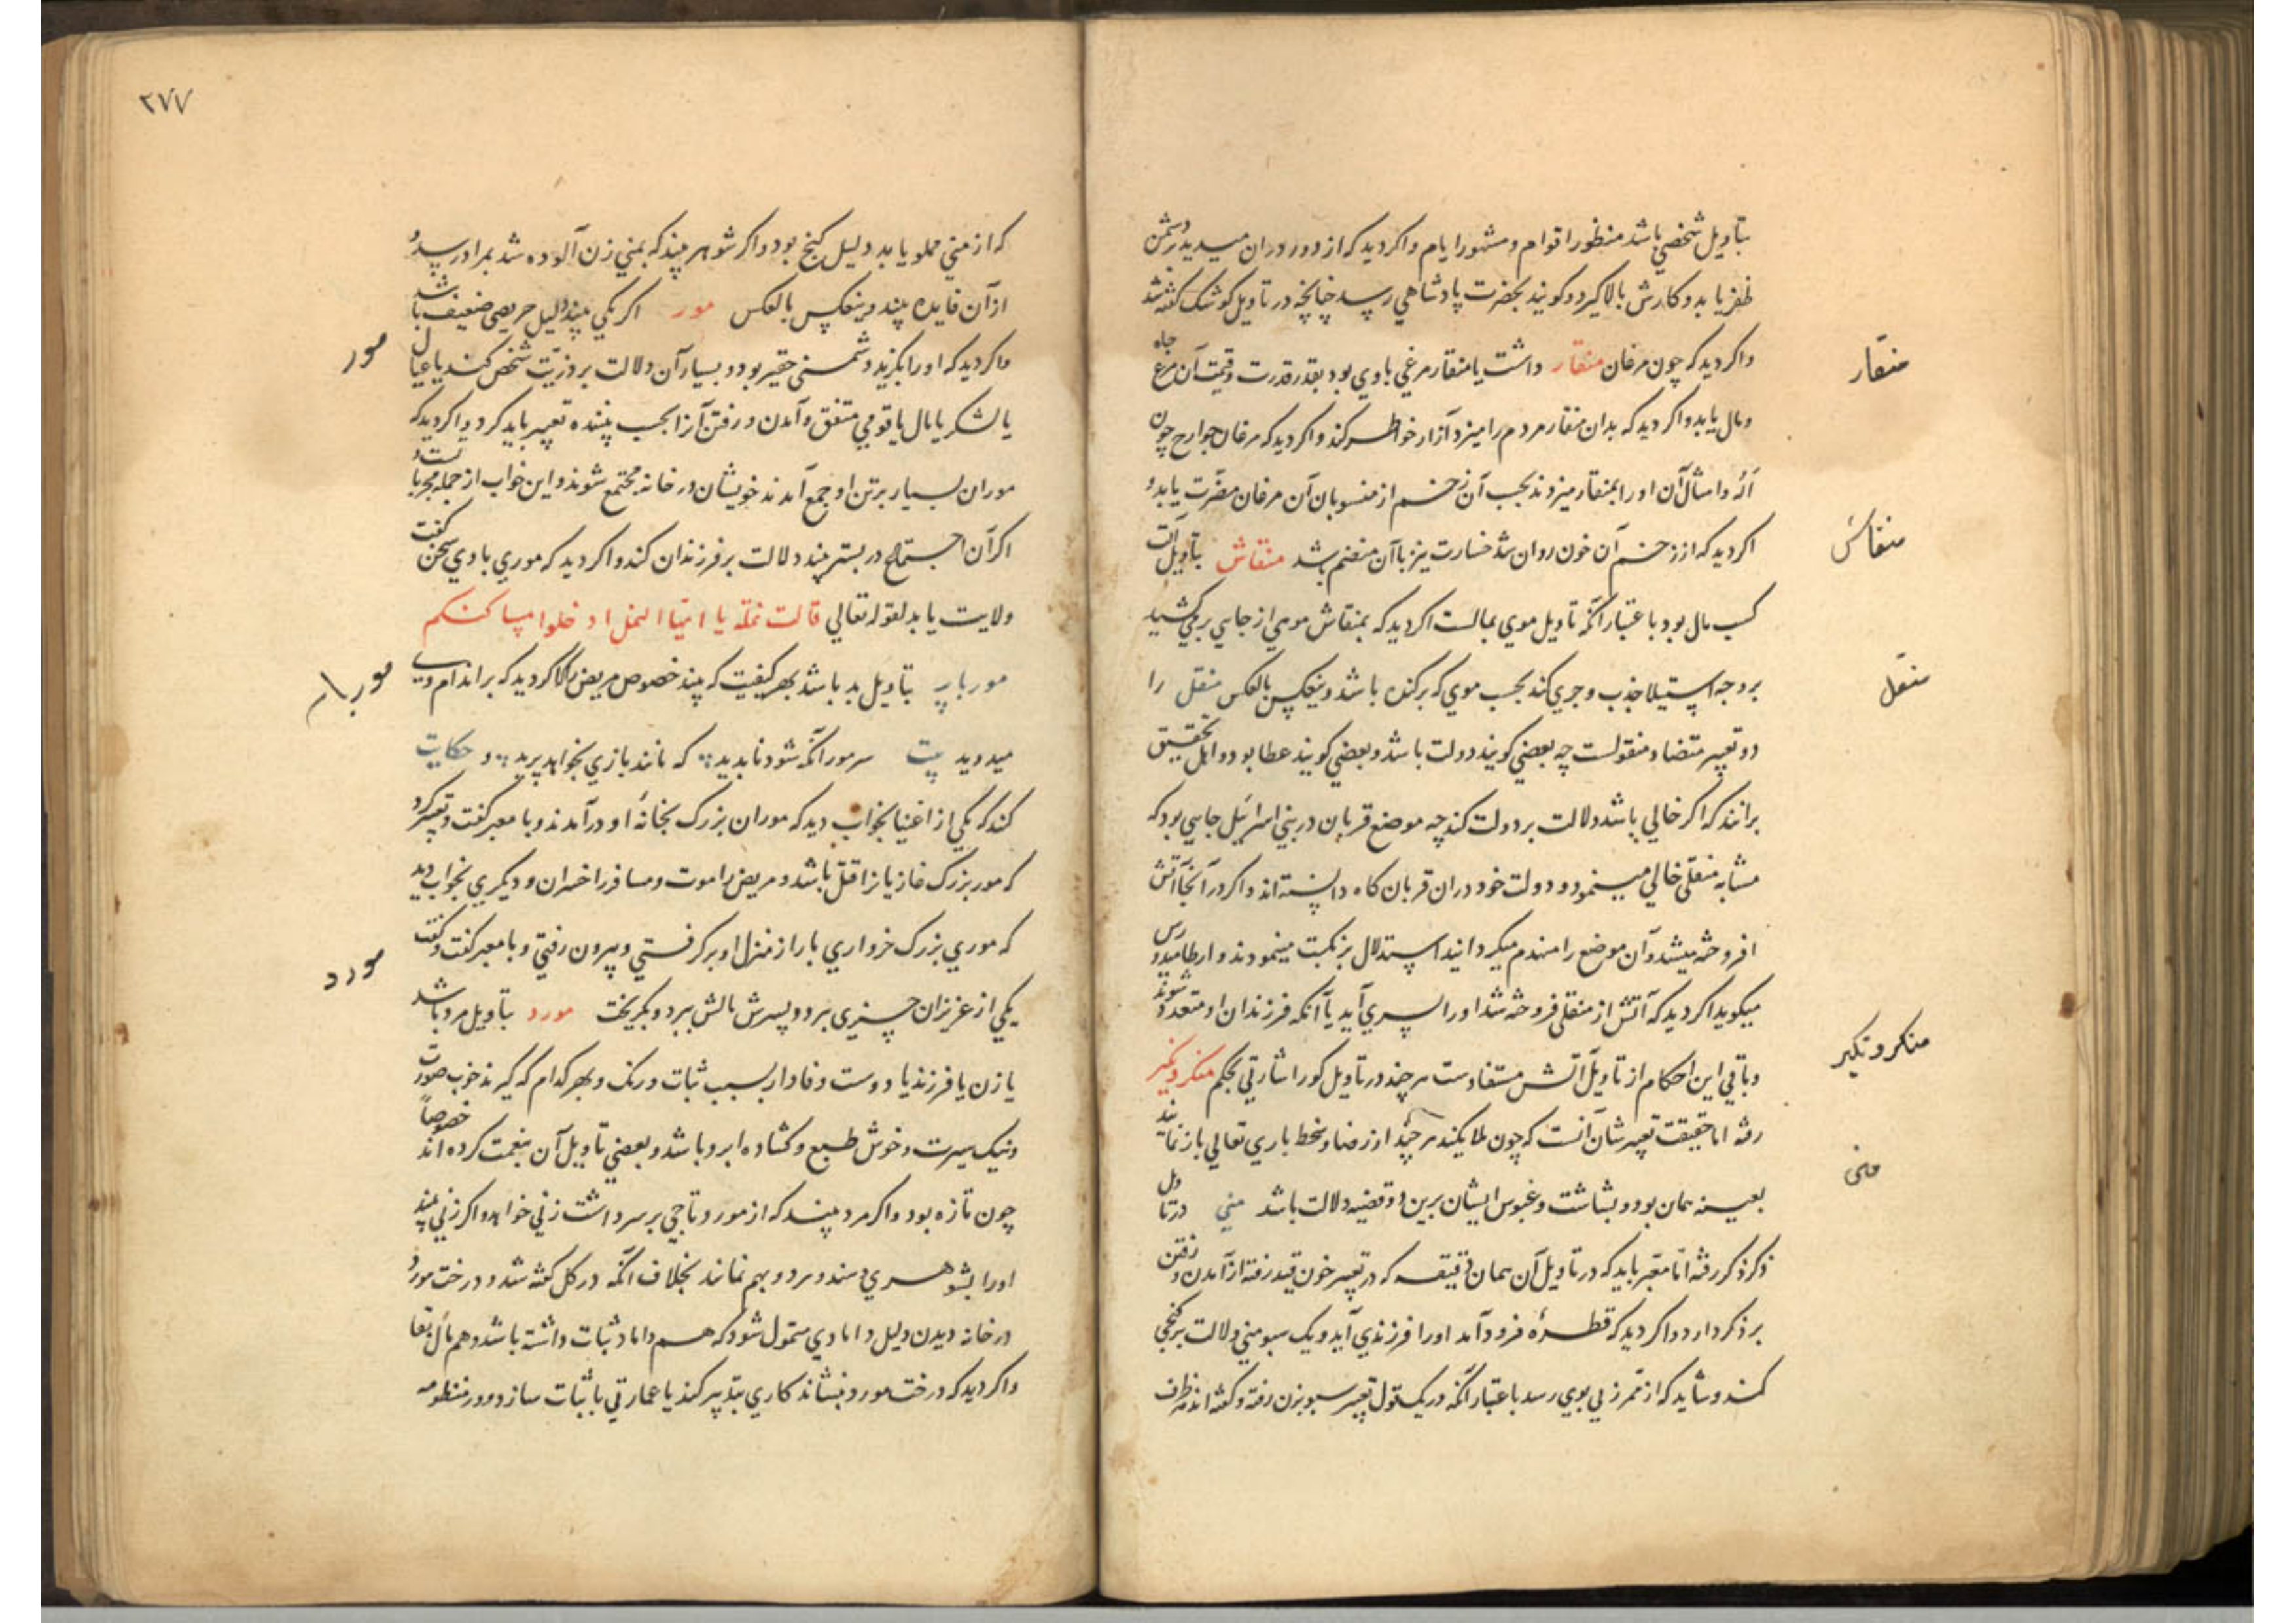 بتأویل شخصی باشد منظور اقوام و مشهور ایام و اکر دید که از دور دران میدید بر دشمن
ظفر یابد و کارش بالا کیرد و کویند بحضرت پادشاهی رسد چنانچه در تأویل کوشک کفته شد
واکر دید که چون مرغان منقار داشت یا منقار مرغی با وی بود بقدر قدرت و قیمت آن مرغ جاه
ومال یابد و اکر دید که بدان منقار مردم را میزد آزار خواطر کند و اکر دید که مرغان جوارح چون
آله و امثال آن او را بمنقار میزدند بحسب آن زخم از منسوبان آن مرغان مضرت یابد و
اکر دید که از زخم آن خون روان شد خسارت نیز با آن منضم باشد منقاش بتأویل آلت
کسب مال بود باعتبار آنکه تأویل موی بمالست اکر دید که بمنقاش موی از جایی بر می کشید
بر وجه استیلا جذب و جری کند بحسب موی که برکنده باشد و ینعکس بالعکس منقل را
دو تعبیر متضاد منقولست چه بعضی کویند دولت باشد و بعضی کویند عطا بود و اهل تحقیق
برانند که اکر خالی باشد دلالت بر دولت کند چه موضع قربان در بنی اسرائیل جایی بود که
مشابه منقلی خالی مینمود و دولت خود دران قربان کاه دانسته اند و اکر در آنجا آتش
افروخته میشد و آن موضع را منهدم میکردانید استدلال بر نکبت مینمودند و ارطامیدورس
میکوید اکر دید که آتش از منقلی فروخته شد او را پسری آید یا آنکه فرزندان او متعدد شوند
وباقی این احکام از تأویل آتش مستفادست هر چند در تأویل کور اشارتی بحکم منکر و نکیر
رفته اما حقیقت تعبیرشان آنست که چون ملایکند هر چه از رضا و سخط باری تعالی باز نمایند
بعینه همان بود و بشاشت و عبوس ایشان برین دو قضیه دلالت باشد منی در تاویل
ذکر ذکر رفته اما معبر باید که در تأویل آن همان دقیقه که در تعبیر خون قید رفته از آمدن و رفتن
بر ذکر دارد و اکر دید که قطرهٔ فرود آمد او را فرزندی آید و یک سبو منی دلالت بر کنجی
کند و شاید که از ممر زنی بوی رسد باعتبار آنکه در یک قول تعبیر سبو بزن رفته و کفته اند هر ظرف
منقار
منقاش
منقل
منکر و نکیر
منی
۲۷۷
که از منی مملو یابد دلیل کنج بود و اکر شوهر بیند که بمنی زن آلوده شد بمراد رسد و
از آن فایده بیند و ینعکس بالعکس مور اکر یکی بیند دلیل حریصی ضعیف باشد
واکر دید که او را بکزید دشمنی حقیر بود و بسیار آن دلالت بر ذریت شخص کند یا عیال
یا لشکر یا مال یا قومی متفق و آمدن و رفتن آنرا بحسب بیننده تعبیر باید کرد و اکر دید که
موران بسیار بر تن او جمع آمدند خویشان در خانه مجتمع شوند و این خواب از جمله مجرباتست و
اکر آن اجتماع در بستر بیند دلالت بر فرزندان کند و اکر دید که موری با وی سخن کفت
ولایت یابد لقوله تعالی قالت نملة یا ایها النمل ادخلوا مساکنکم
موربار بتأویل بد باشد بهر کیفیت که بیند خصوص مریض را کر دید که بر اندام وی
میدوید بیت سر مور آنکه شود ناپدید که مانند بازی بخواهد پرید و حکایت
کند که یکی از اغنیا بخواب دید که موران بزرک بخانهٔ او در آمدند و با معبر کفت و تعبیر کرد
که مور بزرک غازیانرا قتل باشد و مریض را موت و مسافر را خسران و دیکری بخواب دید
که موری بزرک خرواری بار از منزل او بر کرفتی و بیرون رفتی و با معبر کفت و کفت
یکی از عزیزان چیزی برد و پسرش مالش ببرد و بکریخت مورد بتأویل مرد باشد
یا زن یا فرزند یا دوست وفادار بسبب ثبات و رنک و بهر کدام که کیرند خوب صورت
ونیک سیرت و خوش طبع و کشاده ابرو باشد و بعضی تأویل آن بنعمت کرده اند خصوصاً
چون تازه بود و اکر مرد بیند که از مورد تاجی بر سر داشت زنی خواهد و اکر زنی بیند
او را بشوهری دهند و هر دو بهم نمانند بخلاف آنکه در کل کفته شد و درخت مورد
در خانه دیدن دلیل دامادی متمول شود که هم داماد ثبات داشته باشد و هم مال بقا
واکر دید که درخت مورد بنشاند کاری بتدبیر کند یا عمارتی با ثبات سازد و در منظومه
مور
موربار
مورد